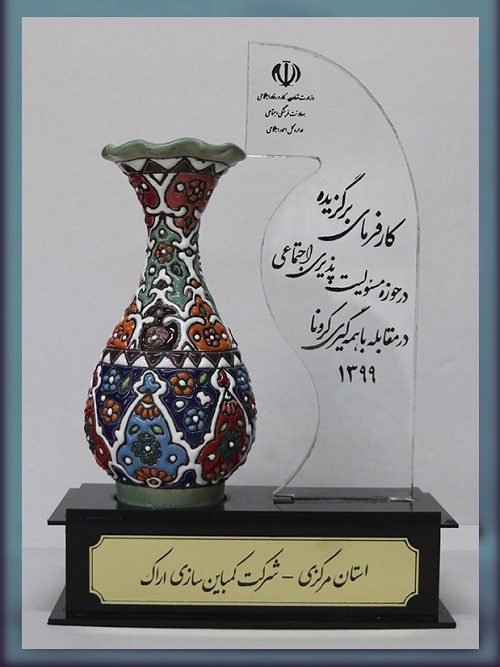 وزارت تعاون، کار و رفاه اجتماعی
معاونت فرهنگی اجتماعی
کارفرمای برگزیده
در حوزه مسئولیت پذیری اجتماعی
در مقابله با همه گیری کرونا
۱۳۹۹
استان مرکزی - شرکت کمباین سازی اراک